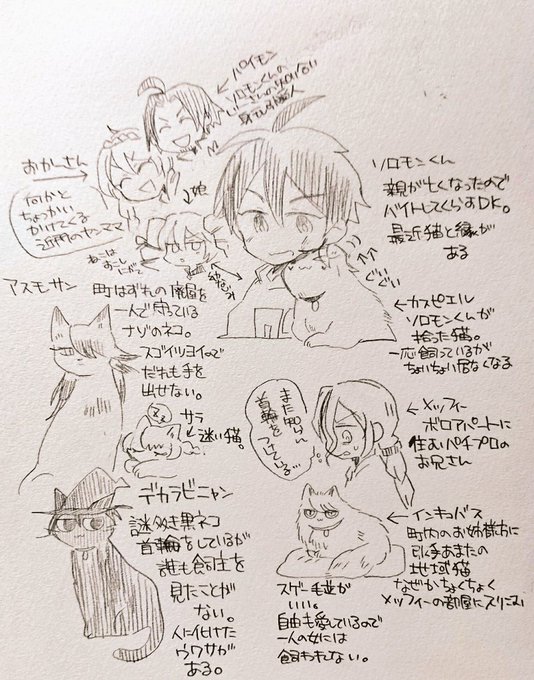 パイモン
ソロモンくんの
おかーさん
何かと
ちょっかい
かけてくる
近所のヤンママ
娘
ソロモンくん
親が亡くなったので
バイトしてくらすDK。
最近猫と縁が
ある
ぐいぐい
←カスピエル
ソロモンくんが
拾った猫。
一応飼っているが
ちょいちょい居なくなる
アスモサン
町はずれの廃屋を
一人で守っている
ナゾのネコ。
スゴイツヨイので
だれも手を
出せない。
サラ
迷い猫。
また知らん
首輪を
つけている…
←メッフィー
ボロアパートに
住むパチプロの
お兄さん
デカラビニャン
謎多き黒ネコ
首輪をしているが
誰も飼主を
見たことが
ない。
人に化けた
ウワサが
ある。
←インキュバス
町内のお姉様方に
引く手あまたの
地域猫
なぜかちょくちょく
メッフィーの部屋に入りこむ
スゲー毛並が
いい。
自由も愛しているので
一人の女には
飼われない。